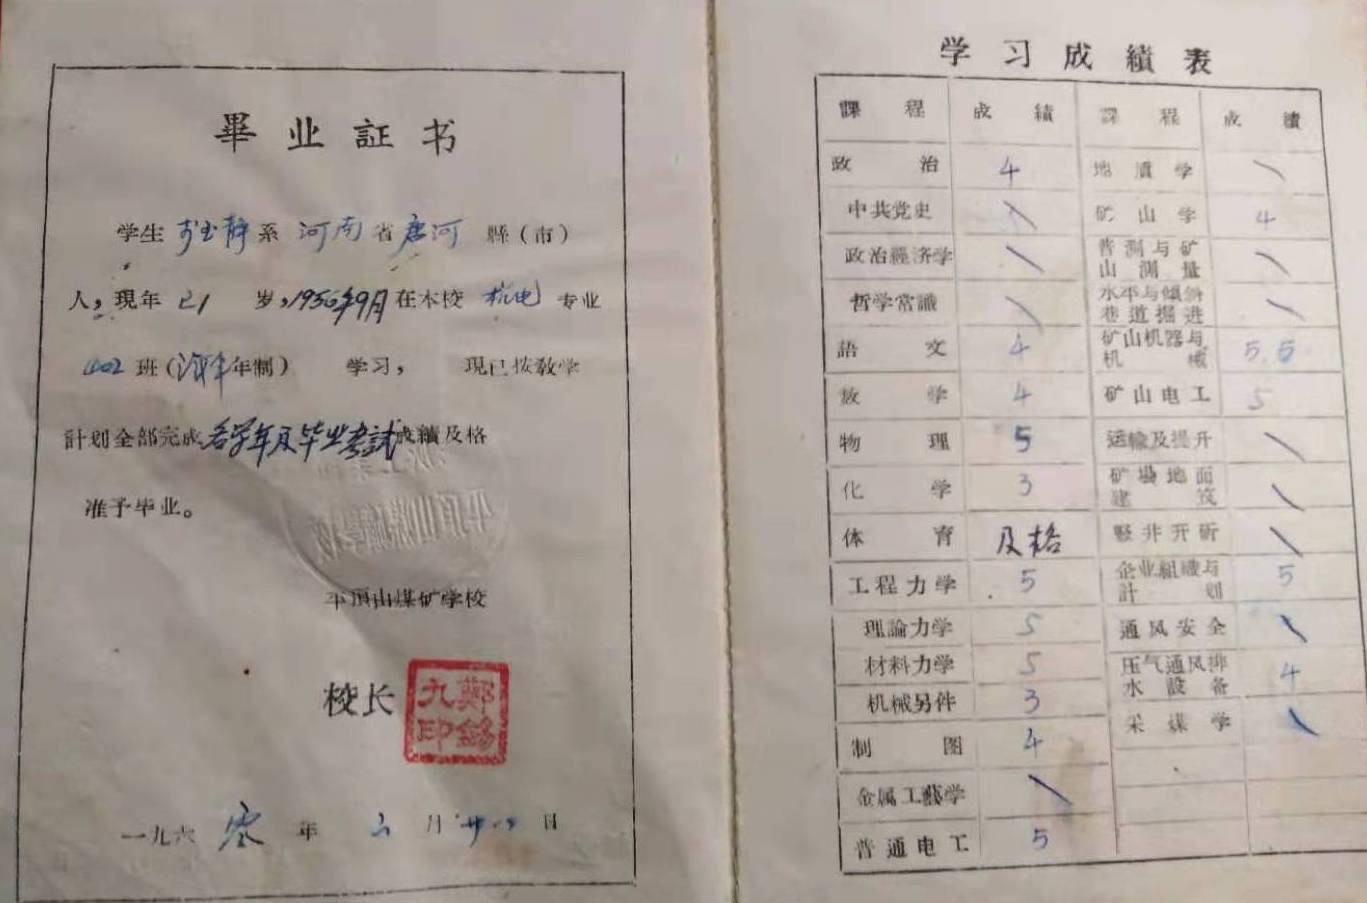 畢业証书
学生 玉静系 河南省唐河 縣（市）
人，現年 21 岁，1956年9月在本校 机电 专业
402班（年制） 学习， 現已按教学
計划全部完成各学年及毕业考試成績及格
准予毕业。
平頂山煤矿学校
校长
鄭錫九印
一九六零年 六月 日
学习成績表
課程 成績 課程 成績
政治 4 地質学 \
中共党史 \ 矿山学 4
政治經济学 \ 普測与矿山測量 \
哲学常識 \ 水平与傾斜巷道掘进 \
語文 4 矿山机器与机械 5.5
数学 4 矿山电工 5
物理 5 运输及提升 \
化学 3 矿場地面建筑 \
体育 及格 竪井开凿 \
工程力学 5 企业組織与計划 5
理論力学 5 通风安全 \
材料力学 5 压气通风排水設备 4
机械另件 3 采煤学 \
制图 4
金属工藝学 \
普通电工 5